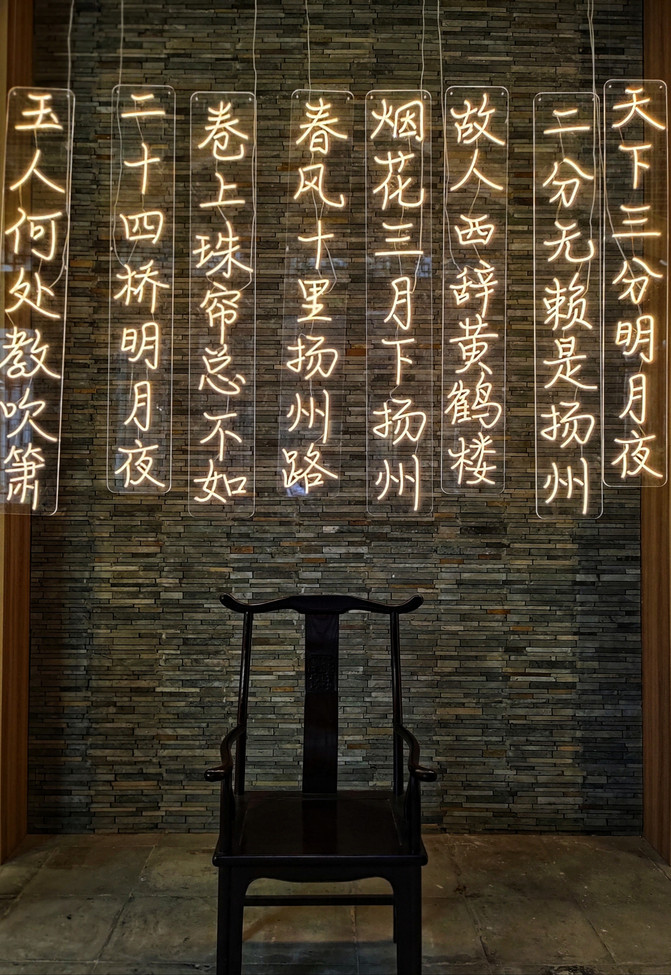 天下三分明月夜
二分无赖是扬州
故人西辞黄鹤楼
烟花三月下扬州
春风十里扬州路
卷上珠帘总不如
二十四桥明月夜
玉人何处教吹箫